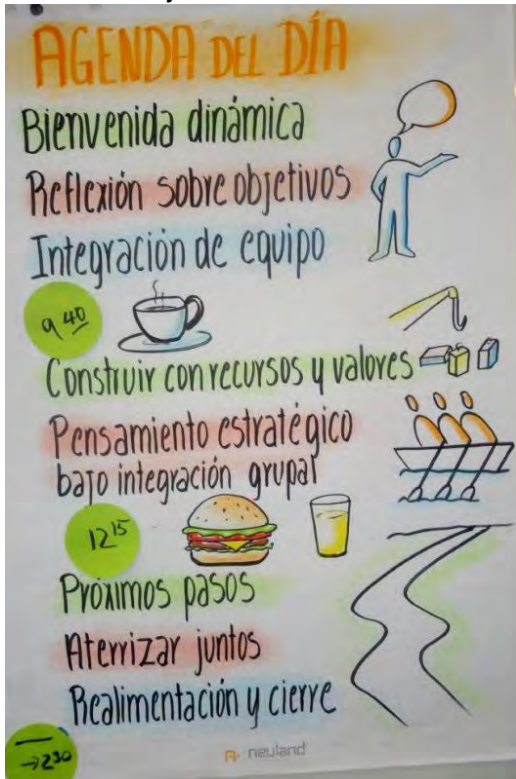 AGENDA DEL DÍA
Bienvenida dinámica
Reflexión sobre objetivos
Integración de equipo
9 40
Construir con recursos y valores
Pensamiento estratégico
bajo integración grupal
12 15
Próximos pasos
Aterrizar juntos
Realimentación y cierre
→ 2 30
neuland